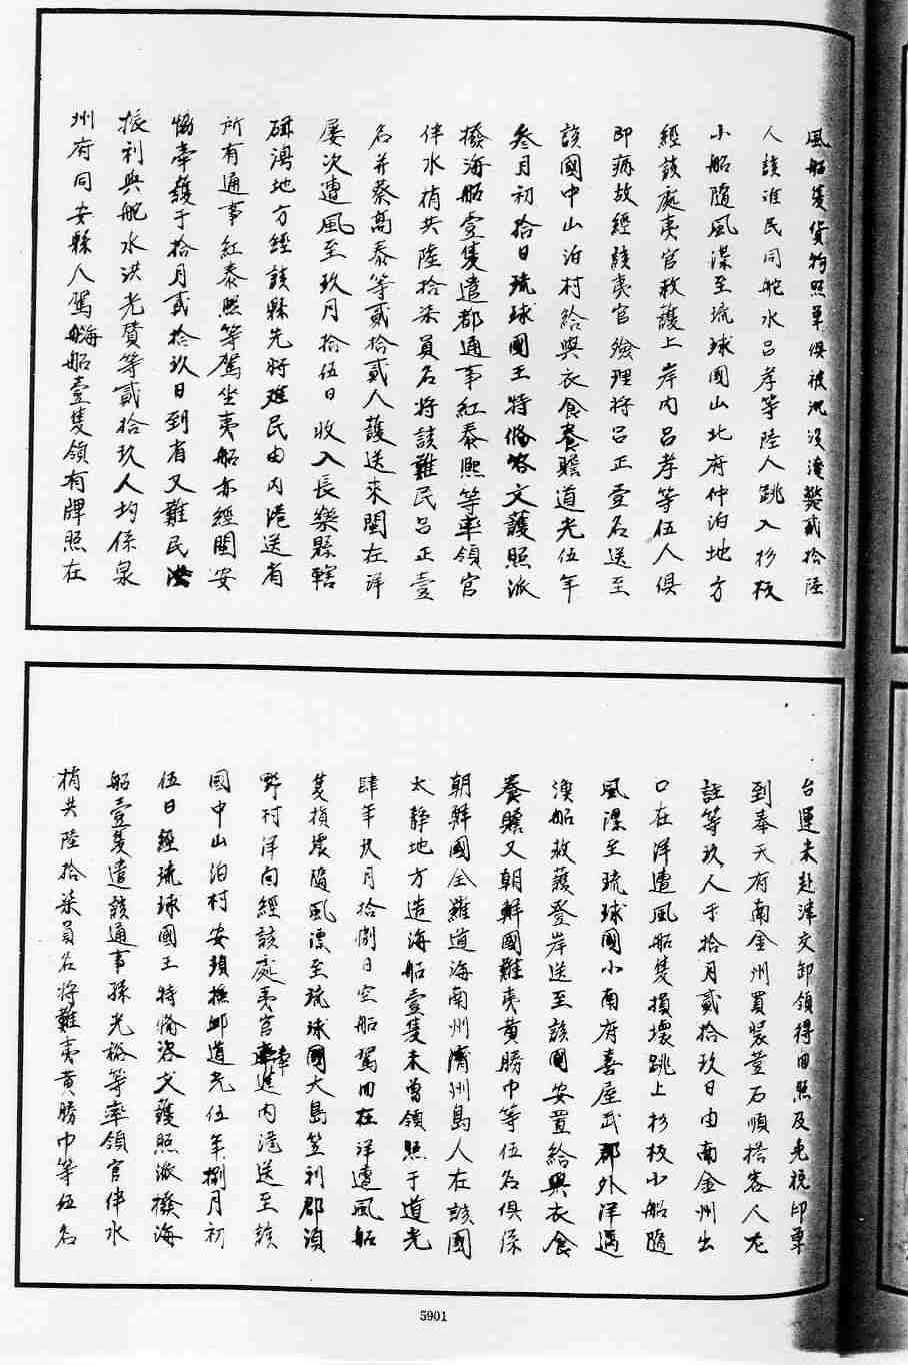 風船隻貨物照單俱被沉沒淹斃貳拾陸
人該准民同舵水呂孝等陸人跳入杉板
小船隨風漂至琉球國山北府仲泊地方
經該處夷官救護上岸內呂孝等伍人俱
即病故經該夷官殮理將呂正壹名送至
該國中山泊村給與衣食養贍道光伍年
叁月初拾日琉球國王特俻咨文護照派
撥海船壹隻遣都通事紅泰熙等率領官
伴水梢共陸拾柒員名將該難民呂正壹
名并蔡高泰等貳拾貳人護送來閩在洋
屡次遭風至玖月拾伍日收入長樂縣轄
磹鴻地方經該縣先將难民由內港送省
所有通事紅泰熙等駕坐夷船亦經閩安
恊牽護于拾月貳拾玖日到省又難民洪
振利與舵水洪光贊等貳拾玖人均係泉
州府同安縣人駕海船壹隻領有牌照在
台運未赴津交卸領得回照及免稅印單
到奉天府南金州買裝荳石順搭客人尤
註等玖人于拾月貳拾玖日由南金州出
口在洋遭風船隻損壞跳上杉板小船隨
風漂至琉球國小南府喜屋武郡外洋遇
漁船救護登岸送至該國安置給與衣食
養贍又朝鮮國難夷黄勝巾等伍名俱係
朝鮮國全羅道海南州濟州島人在該國
太靜地方造海船壹隻未曾領照于道光
肆年玖月拾捌日空船駕回在洋遭風船
隻損壞隨風漂至琉球國大島笠利郡湏
野村洋面經該處夷官牽進內港送至該
國中山泊村安頓撫卹道光伍年捌月初
伍日經琉球國王特俻咨文護照派撥海
船壹隻遣該通事孫光裕等率領官伴水
梢共陸拾柒員名將難夷黄勝巾等伍名
5901